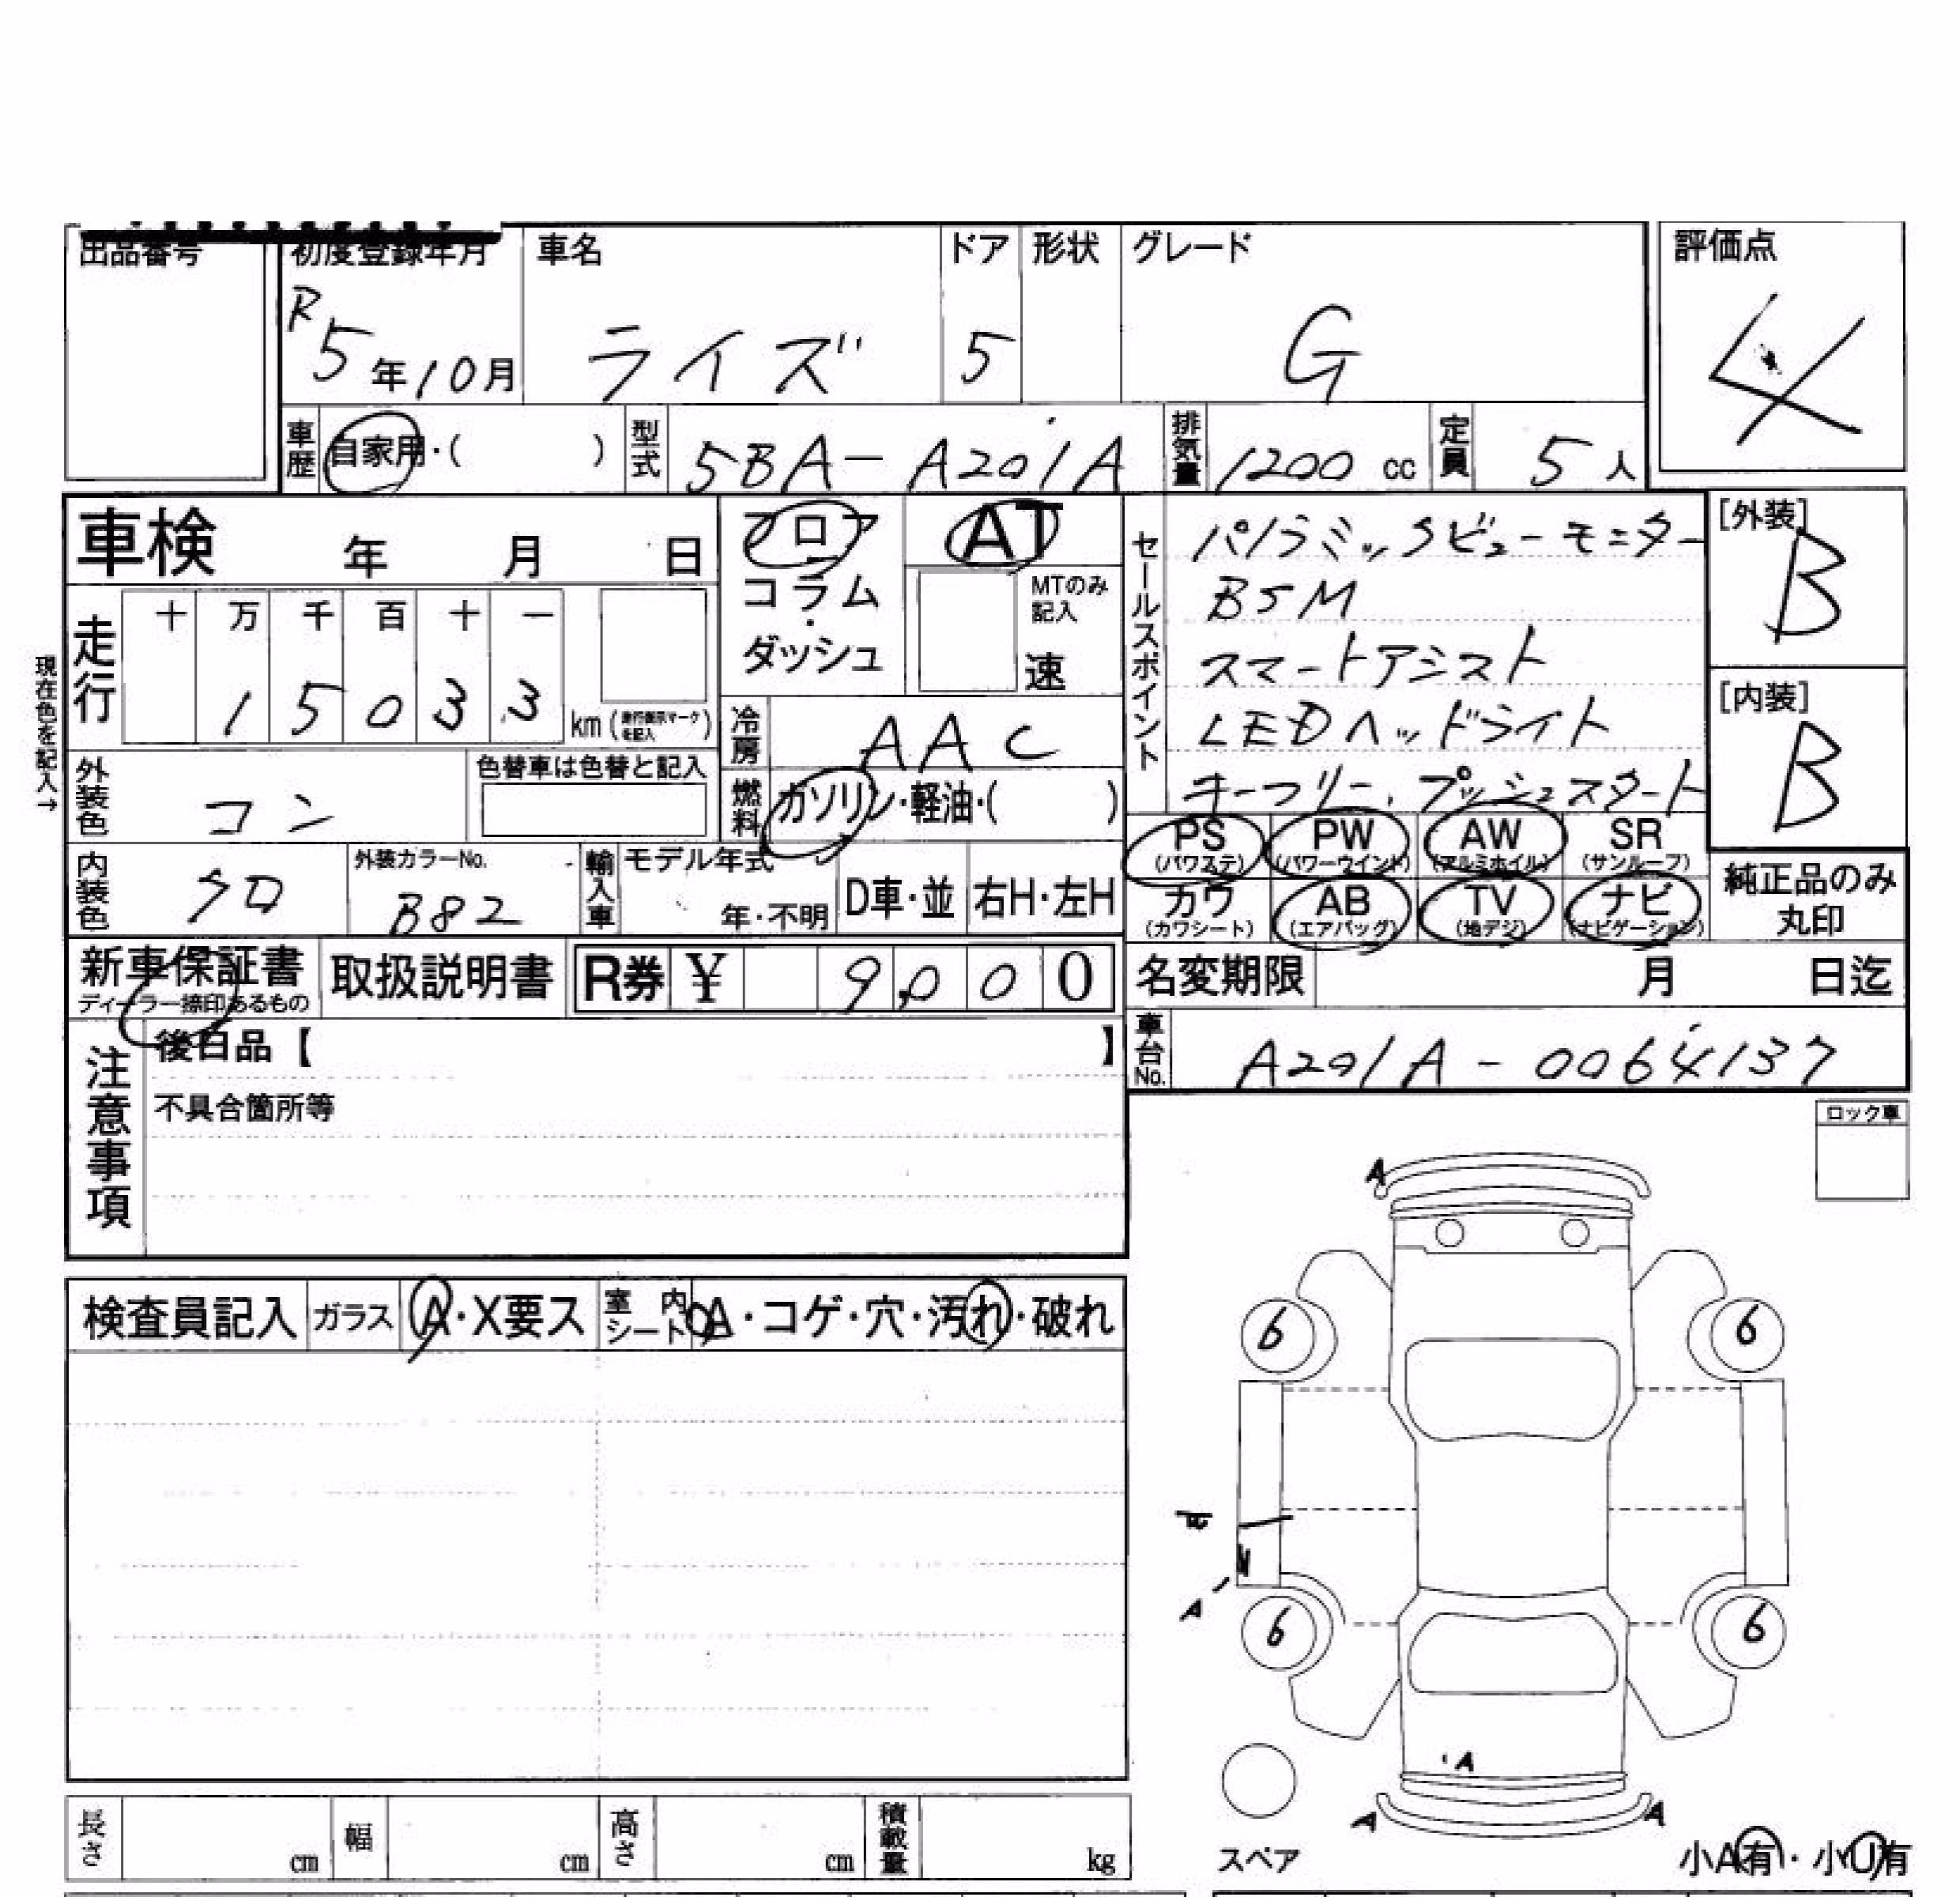 出品番号
初度登録年月 R5年10月
車名 ライズ
ドア 5
形状
グレード G
評価点 4
車歴 自家用・( )
型式 5BA-A201A
排気量 1200 cc
定員 5人
車検 年 月 日
フロア
コラム・ダッシュ
AT
MTのみ記入
速
セールスポイント
パノラミックビューモニター
BSM
スマートアシスト
LEDヘッドライト
キーフリー、プッシュスタート
[外装] B
[内装] B
現在色を記入→
走行
十 万 千 百 十 一
1 5 0 3 3 km (走行表示マークを記入)
冷房 AAC
外装色 コン
色替車は色替と記入
燃料 ガソリン・軽油・( )
内装色 クロ
外装カラーNo. B82
輸入車
モデル年式
年・不明
D車・並
右H・左H
PS (パワステ)
PW (パワーウインド)
AW (アルミホイル)
SR (サンルーフ)
カワ (カワシート)
AB (エアバッグ)
TV (地デジ)
ナビ (ナビゲーション)
純正品のみ丸印
新車保証書
ディーラー捺印あるもの
取扱説明書
R券 ¥ 9,000
名変期限 月 日迄
注意事項
後日品【 】
不具合箇所等
車台No. A201A-0064137
ロック車
検査員記入
ガラス A・X要ス
室内シート A・コゲ・穴・汚れ・破れ
A
6 6
A
6 6
A
A A
スペア
小A有・小U有
長さ cm
幅 cm
高さ cm
積載量 kg